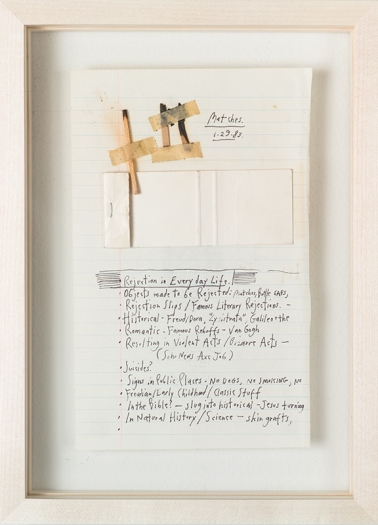 Matches.
1-29-83.
Rejection in Everyday Life.
• Objects made to be Rejected: Matches, Bottle Caps,
• Rejection Slips / Famous Literary Rejections. -
• Historical - Freud/Dora, "Lysistrata" Galileo + the
• Romantic - Famous Rebuffs - Van Gogh
• Resulting in Violent Acts / Bizarre Acts -
(Job)
• Suicides?
• Signs in Public Places - No DOGS, NO SMOKING, NO
• Freudian/Early Childhood / Classic Stuff
• In the Bible? - slug into historical - Jesus turning
• In Natural History / Science - skin grafts,
•